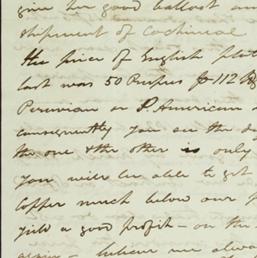 give her good ballast an
shipment of Cochineal
the price of English plat
last was 50 Rupees P 112
Peruvian or S American
consequently you see the d
the one & the other is only
you will be able to get
Copper much below our p
yield a good profit - on the
again - believe me alwa